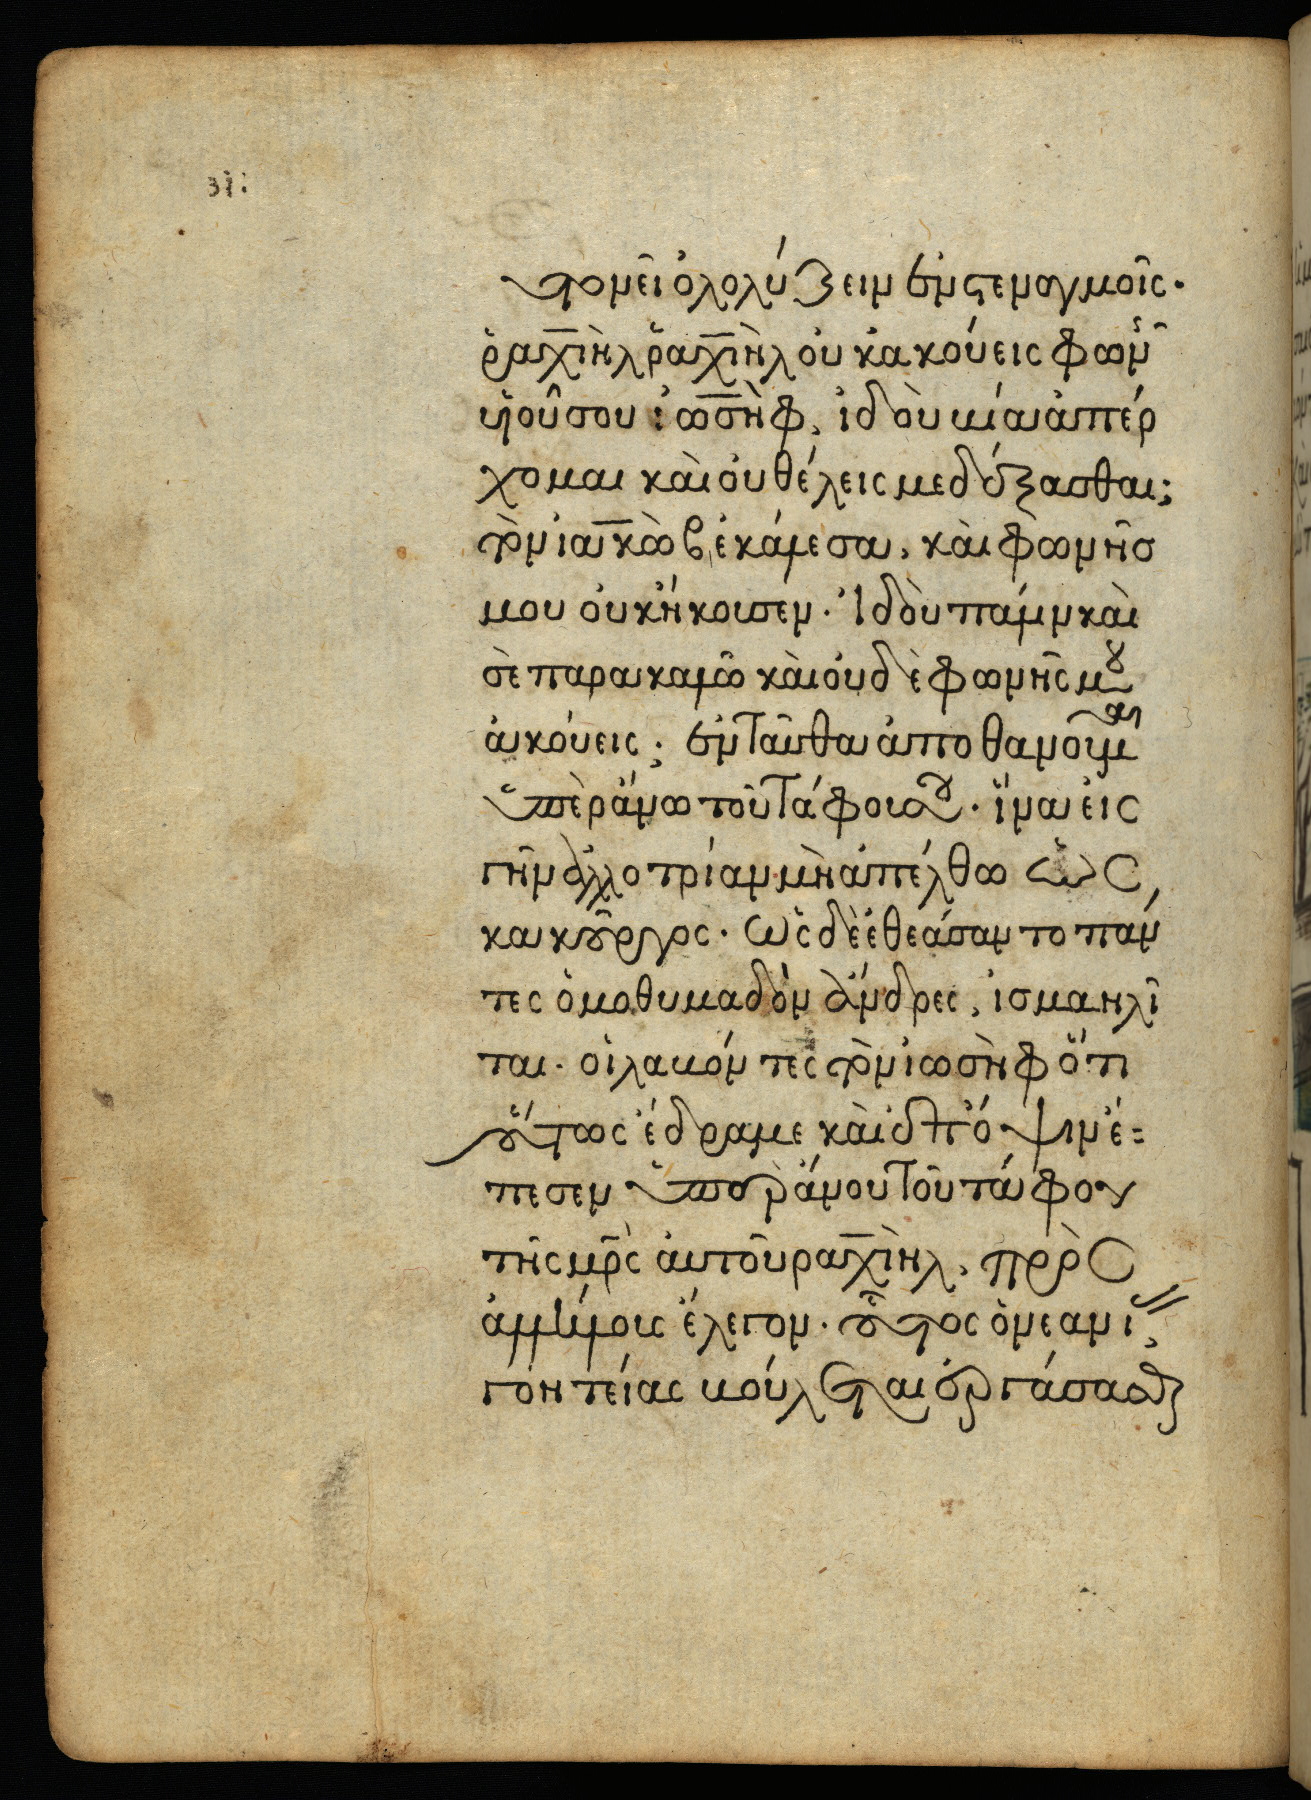 31:
τονεῖ ὀλολύζειν ἐν στεναγμοῖς·
ῥαχιὴλ ῥαχιὴλ οὐκ ἀκούεις φωνῆ
υἱοῦ σου ἰωσὴφ, ἰδοὺ κἀι ἀπέρ
χομαι καὶ οὐ θέλεις με δέξασθαι;
τὸν ἰακὼβ ἐκάλεσα, καὶ φωνῆσ
μου οὐκ ἤκουσεν· ἰδοὺ πάλιν καὶ
σὲ παρακαλῶ καὶ οὐδὲ φωνῆς μου
ἀκούεις; ἐνταῦθα ἀποθανοῦμαι
ὑπεράνω τοῦ τάφου σου· ἵνα εἰς
γῆν ἀλλοτρίαν μὴ ἀπέλθω ὡς
κακοῦργος· ὡς δὲ ἐθεάσαντο πάν
τες ὁμοθυμαδὸν ἄνδρες, ἰσμαηλῖ
ται· οἱ λαβόντες τὸν ἰωσὴφ ὅτι
οὕτως ἔδραμε καὶ ἐπ' ὄψιν ἔ=
πεσεν ὑπεράνου τοῦ τάφου
τῆς μρς ἀυτοῦ ραχιὴλ, πρὸς
ἀλλήλους ἔλεγον· οὗτος ὁ νεανί,,
γοητείας βούλεται ἐργάσασθαι